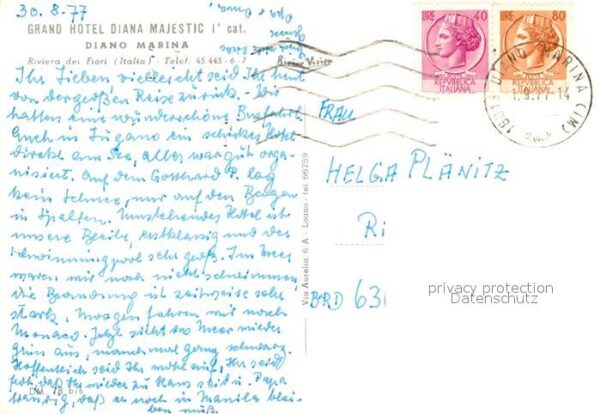 30.8.77
GRAND HOTEL DIANA MAJESTIC 1ª cat.
DIANO MARINA
Riviera dei Fiori (Italia) - Telef. 45 445 - 6 - 7
Ihr Lieben vielleicht seid Ihr heut
von der großen Reise zurück. Wir
hatten eine wunderschöne Busfahrt.
Auch in Lugano ein schickes Hotel
direkt am See, alles war gut orga-
nisiert. Auf dem Gotthard P. lag
kein Schnee, nur auf den Bergen
in Spalten. Umstehendes Hotel ist
unsere Bleibe, erstklassig und der
Schwimmingpool sehr groß. Im Meer
waren wir noch nicht schwimmen
die Brandung ist zeitweise sehr
stark. Morgen fahren wir nach
Monaco. Jetzt sieht das Meer wieder
grün aus, manchmal ganz schwarz.
Hoffentlich seid Ihr wohl auf, Ihr seid
froh, daß Ihr wieder zu Haus seid u. Papa
traurig, daß er noch in Manila blei-
ben muß.
Opa + Oma
LIRE 40
REPVBBLICA
ITALIANA
LIRE 80
REPVBBLICA
ITALIANA
DIANO MARINA (IM)
1.9.77-14
FRAU
HELGA PLÄNITZ
Ri
BRD 631
Via Aurelia, 6 A - Loano - tel. 66759
privacy protection
Datenschutz